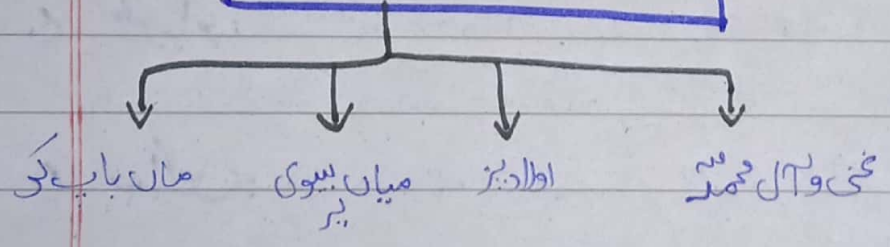 غنی و آل محمدؐ
اولاد پر
میاں بیوی
پر
ماں باپ کو